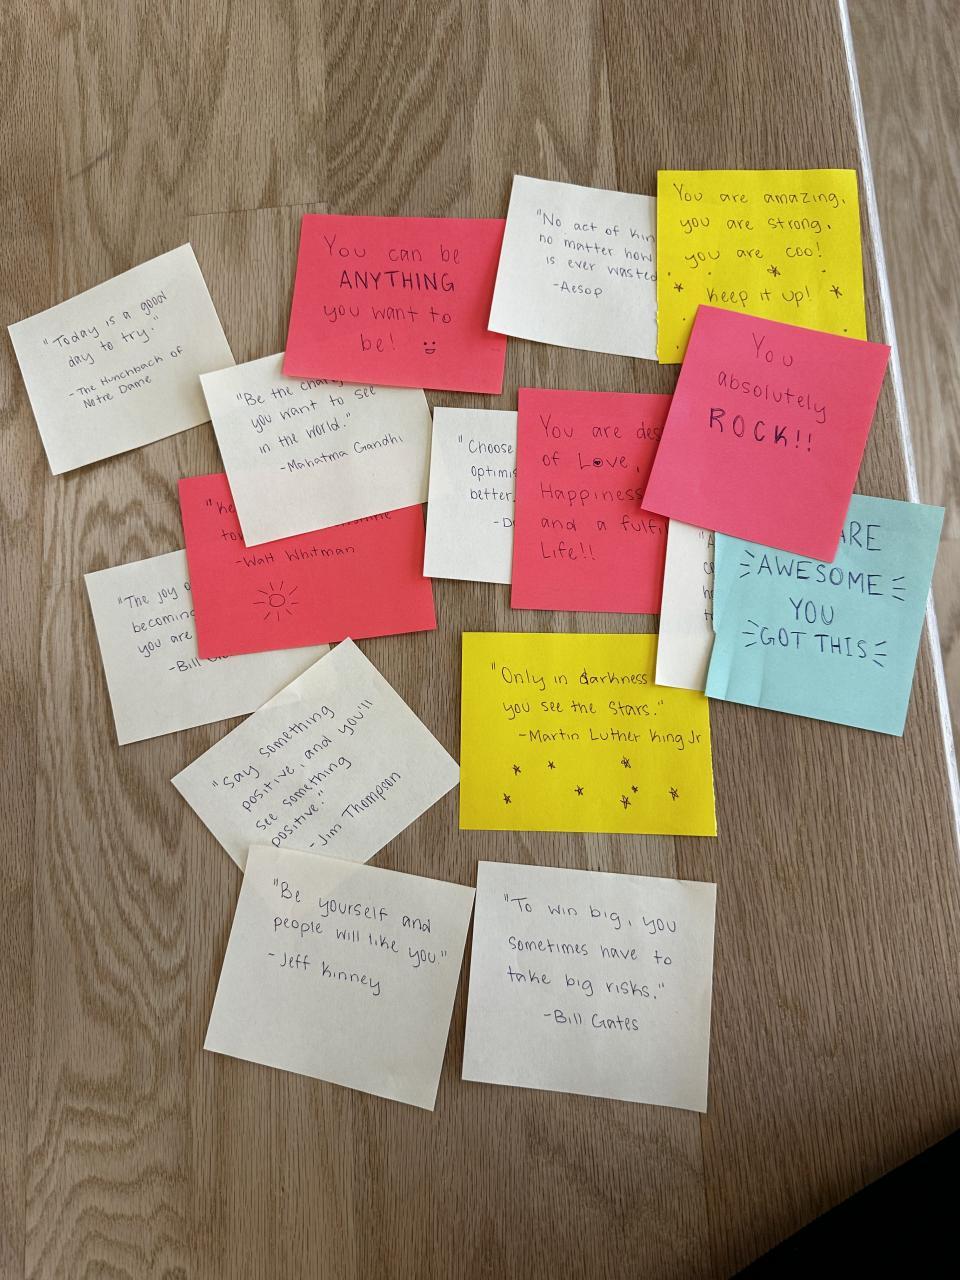 "Today is a good
day to try."
-The Hunchback of
Notre Dame
You can be
ANYTHING
you want to
be!
"No act of
no matter how
is ever wasted
-Aesop
You are amazing,
you are strong,
you are coo!
Keep it up!
You
absolutely
ROCK!!
"Be the
you want to see
in the world."
-Mahatma Gandhi
"Choose
better.
You are
of Love,
Happiness
and a
Life!!
ARE
AWESOME
YOU
GOT THIS
-Walt Whitman
"The joy
becoming
you are
-Bill
"Only in darkness
you see the stars."
-Martin Luther King Jr
"Say something
positive, and you'll
see something
positive."
-Jim Thompson
"Be yourself and
people will like you."
-Jeff Kinney
"To win big, you
sometimes have to
take big risks."
-Bill Gates